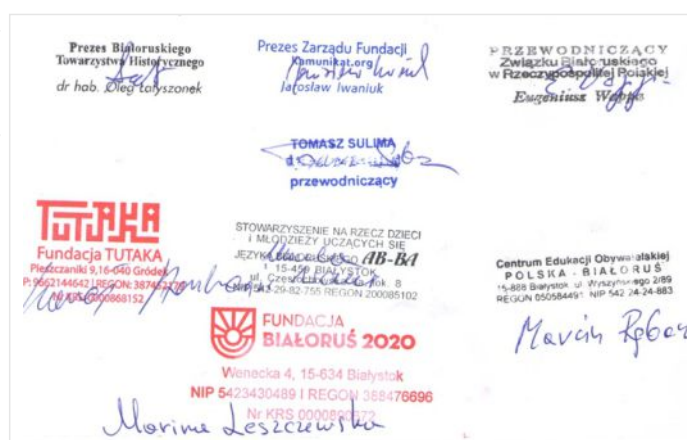 Prezes Białoruskiego
Towarzystwa Historycznego
dr hab. Oleg Łatyszonek
Prezes Zarządu Fundacji
Kamunikat.org
Jarosław Iwaniuk
PRZEWODNICZĄCY
Związku Białoruskiego
w Rzeczypospolitej Polskiej
Eugeniusz Wappa
TOMASZ SULIMA
przewodniczący
TUTAKA
Fundacja TUTAKA
Pieszczaniki 9,16-040 Gródek
NIP: 9662144642 | REGON:
Nr KRS 0000868152
STOWARZYSZENIE NA RZECZ DZIECI
I MŁODZIEŻY UCZĄCYCH SIĘ
JĘZYKA BIAŁORUSKIEGO AB-BA
15-459 BIAŁYSTOK
ul. Częstochowska 8
NIP 542-29-82-755 REGON 200085102
Centrum Edukacji Obywatelskiej
POLSKA - BIAŁORUŚ
15-888 Białystok ul. Wyszyńskiego 2/89
REGON 050584491 NIP 542 24-24-883
Marcin Rębacz
FUNDACJA
BIAŁORUŚ 2020
Wenecka 4, 15-634 Białystok
NIP 5423430489 I REGON 388476696
Nr KRS 0000890572
Maryna Leszczewska